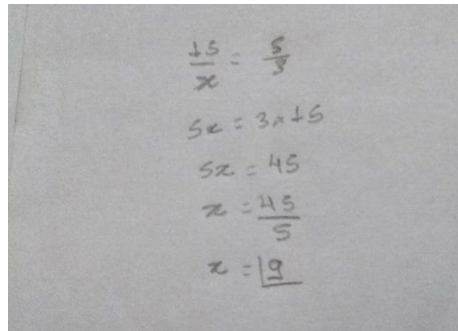 15/x = 5/3
5x = 3x15
5x = 45
x = 45/5
x = 9